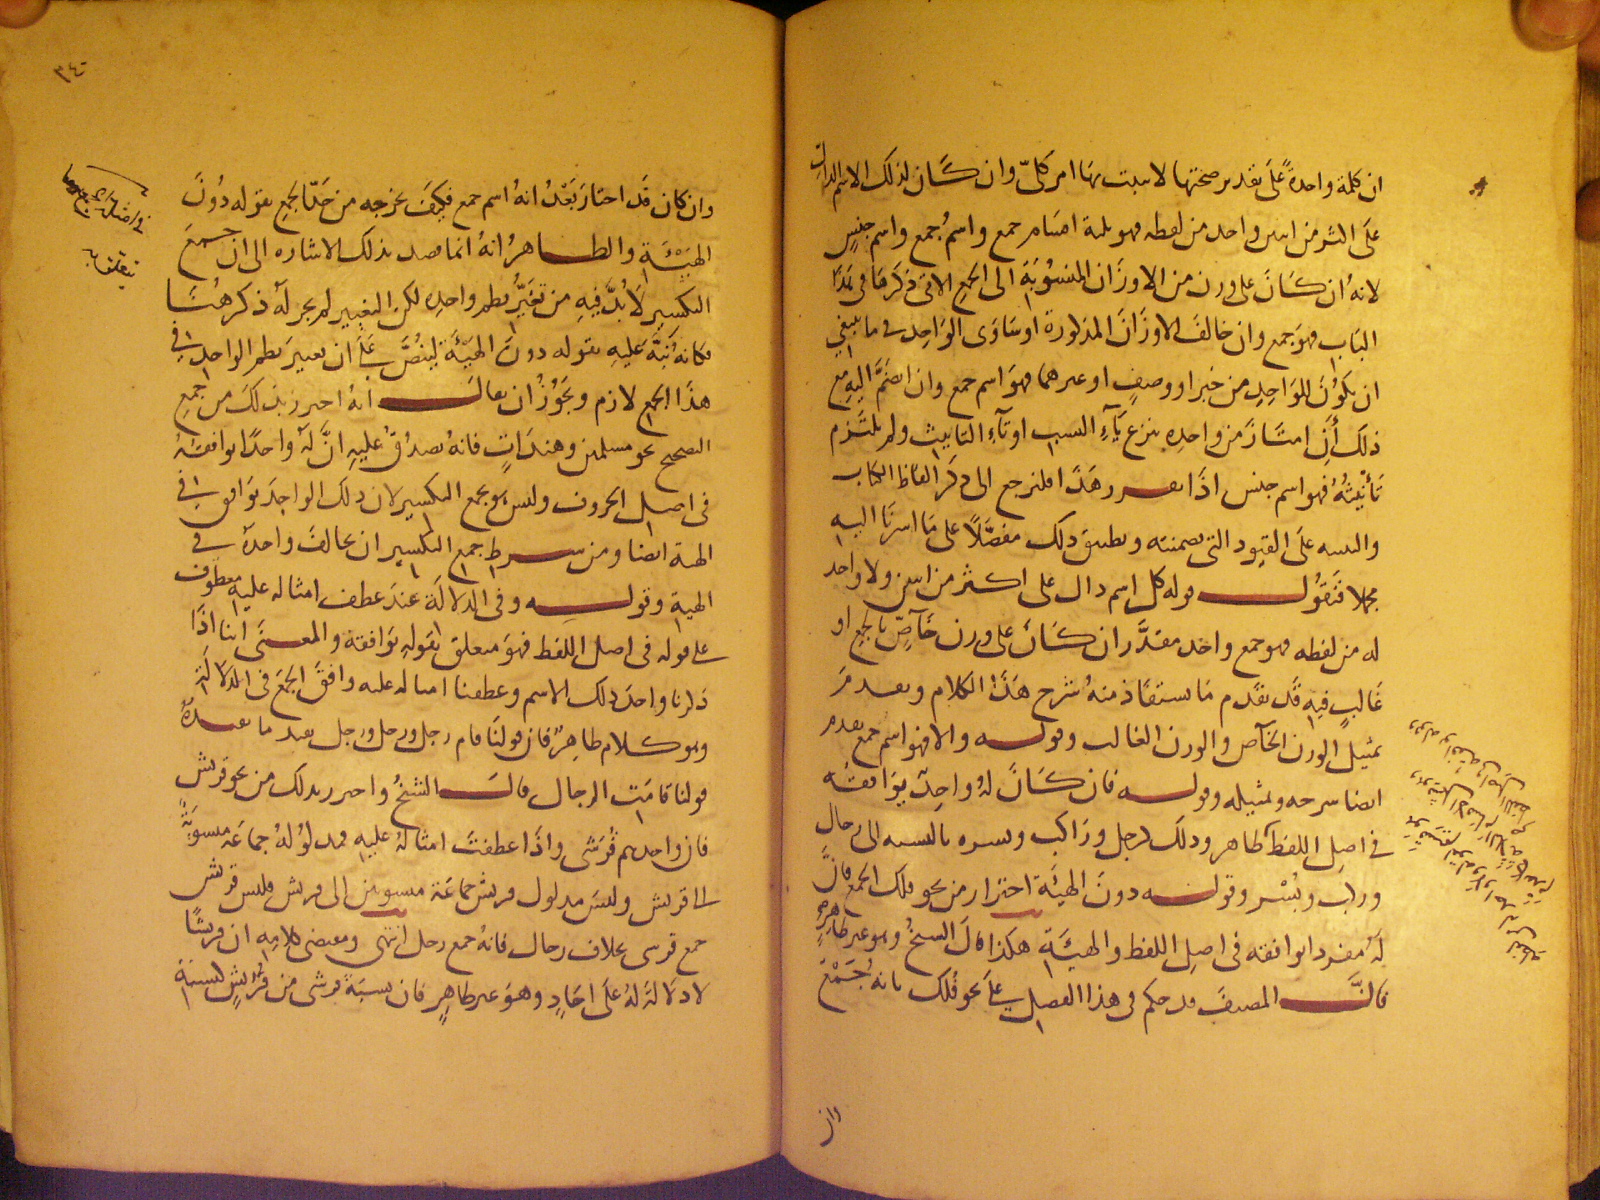 ان كلمة واحدة على تقدير صحتها لا يثبت بها امر كلي وان كان لذلك الاسم الدال
على اكثر من اثنين واحد من لفظه فهو ثلثة اقسام جمع واسم جمع واسم جنس
لانه ان كان على وزن من الاوزان المنسوبة الى الجمع الاتى ذكرها فى هذا
الباب فهو جمع وان خالف الاوزان المذكورة او ساوى الواحد فى ما ينبغي
ان يكون للواحد من خبر او وصف او غيرهما فهو اسم جمع وان انضم اليه مع
ذلك أن امتاز من واحده بنزع ياء النسب او تاء التانيث ولم يلتزم
تأنيثه فهو اسم جنس اذا تقرر هذا فلنرجع الى ذكر الفاظ الكتاب
والتنبيه على القيود التى تضمنته وتطبيق ذلك مفصلا على ما اشرنا اليه
مجملا فنقول قوله كل اسم دال على اكثر من اثنين ولا واحد
له من لفظه فهو جمع واحد مقدر ان كان على وزن خاص بالجمع او
غالب فيه قد تقدم ما يستفاد منه شرح هذا الكلام وتقدم
تمثيل الوزن الخاص والوزن الغالب وقوله والا فهو اسم جمع تقدم
ايضا شرحه وتمثيله وقوله فان كان له واحد يوافقه
فى اصل اللفظ ظاهر وذلك كرجل وراكب وبسره بالنسبه الى رجال
وركاب وبسر وقوله دون الهيئة احترازا من نحو فلك الجمع فان
له مفردا يوافقه فى اصل اللفظ والهيئة هكذا قال الشيخ وهو غير ظاهر
فان المصنف قد حكم فى هذا الفصل على نحو فلك بانه جمع
وان
٣٤٠
وان كان قد اختار بعد انه اسم جمع فكيف يخرجه من حد الجمع بقوله دون
الهيئة والظاهر انه انما قصد بذلك الاشاره الى ان جمع
التكسير لا بد فيه من تغير نظم واحده لكن التغيير لم يجر له ذكر هنا
فكانه نبه عليه بقوله دون الهيئة لينص على ان تغيير نظم الواحد فى
هذا الجمع لازم ويجوز ان يقال انه احترز بذلك من جمع
الصحيح نحو مسلمين وهندات فانه يصدق عليه ان له واحدا يوافقه
فى اصل الحروف وليس هو بجمع التكسير لان ذلك الواحد يوافق فى
الهية ايضا ومن شرط جمع التكسير ان يخالف واحده فى
الهية وقوله وفى الدلالة عند عطف امثاله عليه معطوف
على قوله فى اصل اللفظ فهو متعلق بقوله يوافقه والمعنى اننا اذا
ذكرنا واحد ذلك الاسم وعطفنا امثاله عليه وافق الجمع فى الدلالة
وهو كلام ظاهر فان قولنا قام رجل ورجل ورجل يفيد ما يفيده
قولنا قامت الرجال قال الشيخ واحترز بذلك من نحو قريش
فان واحدهم قرشى واذا عطفت امثاله عليه فمدلوله جماعة منسوبة
الى قريش وليس مدلول قريش جماعة منسوبين الى قريش فليس قريش
جمع قرشى بخلاف رجال فانه جمع رجل انتهى ومقتضى كلامه ان قريشا
لا دلالة له على احاد وهو غير ظاهر فان نسبة قرشى من قريش كنسبة